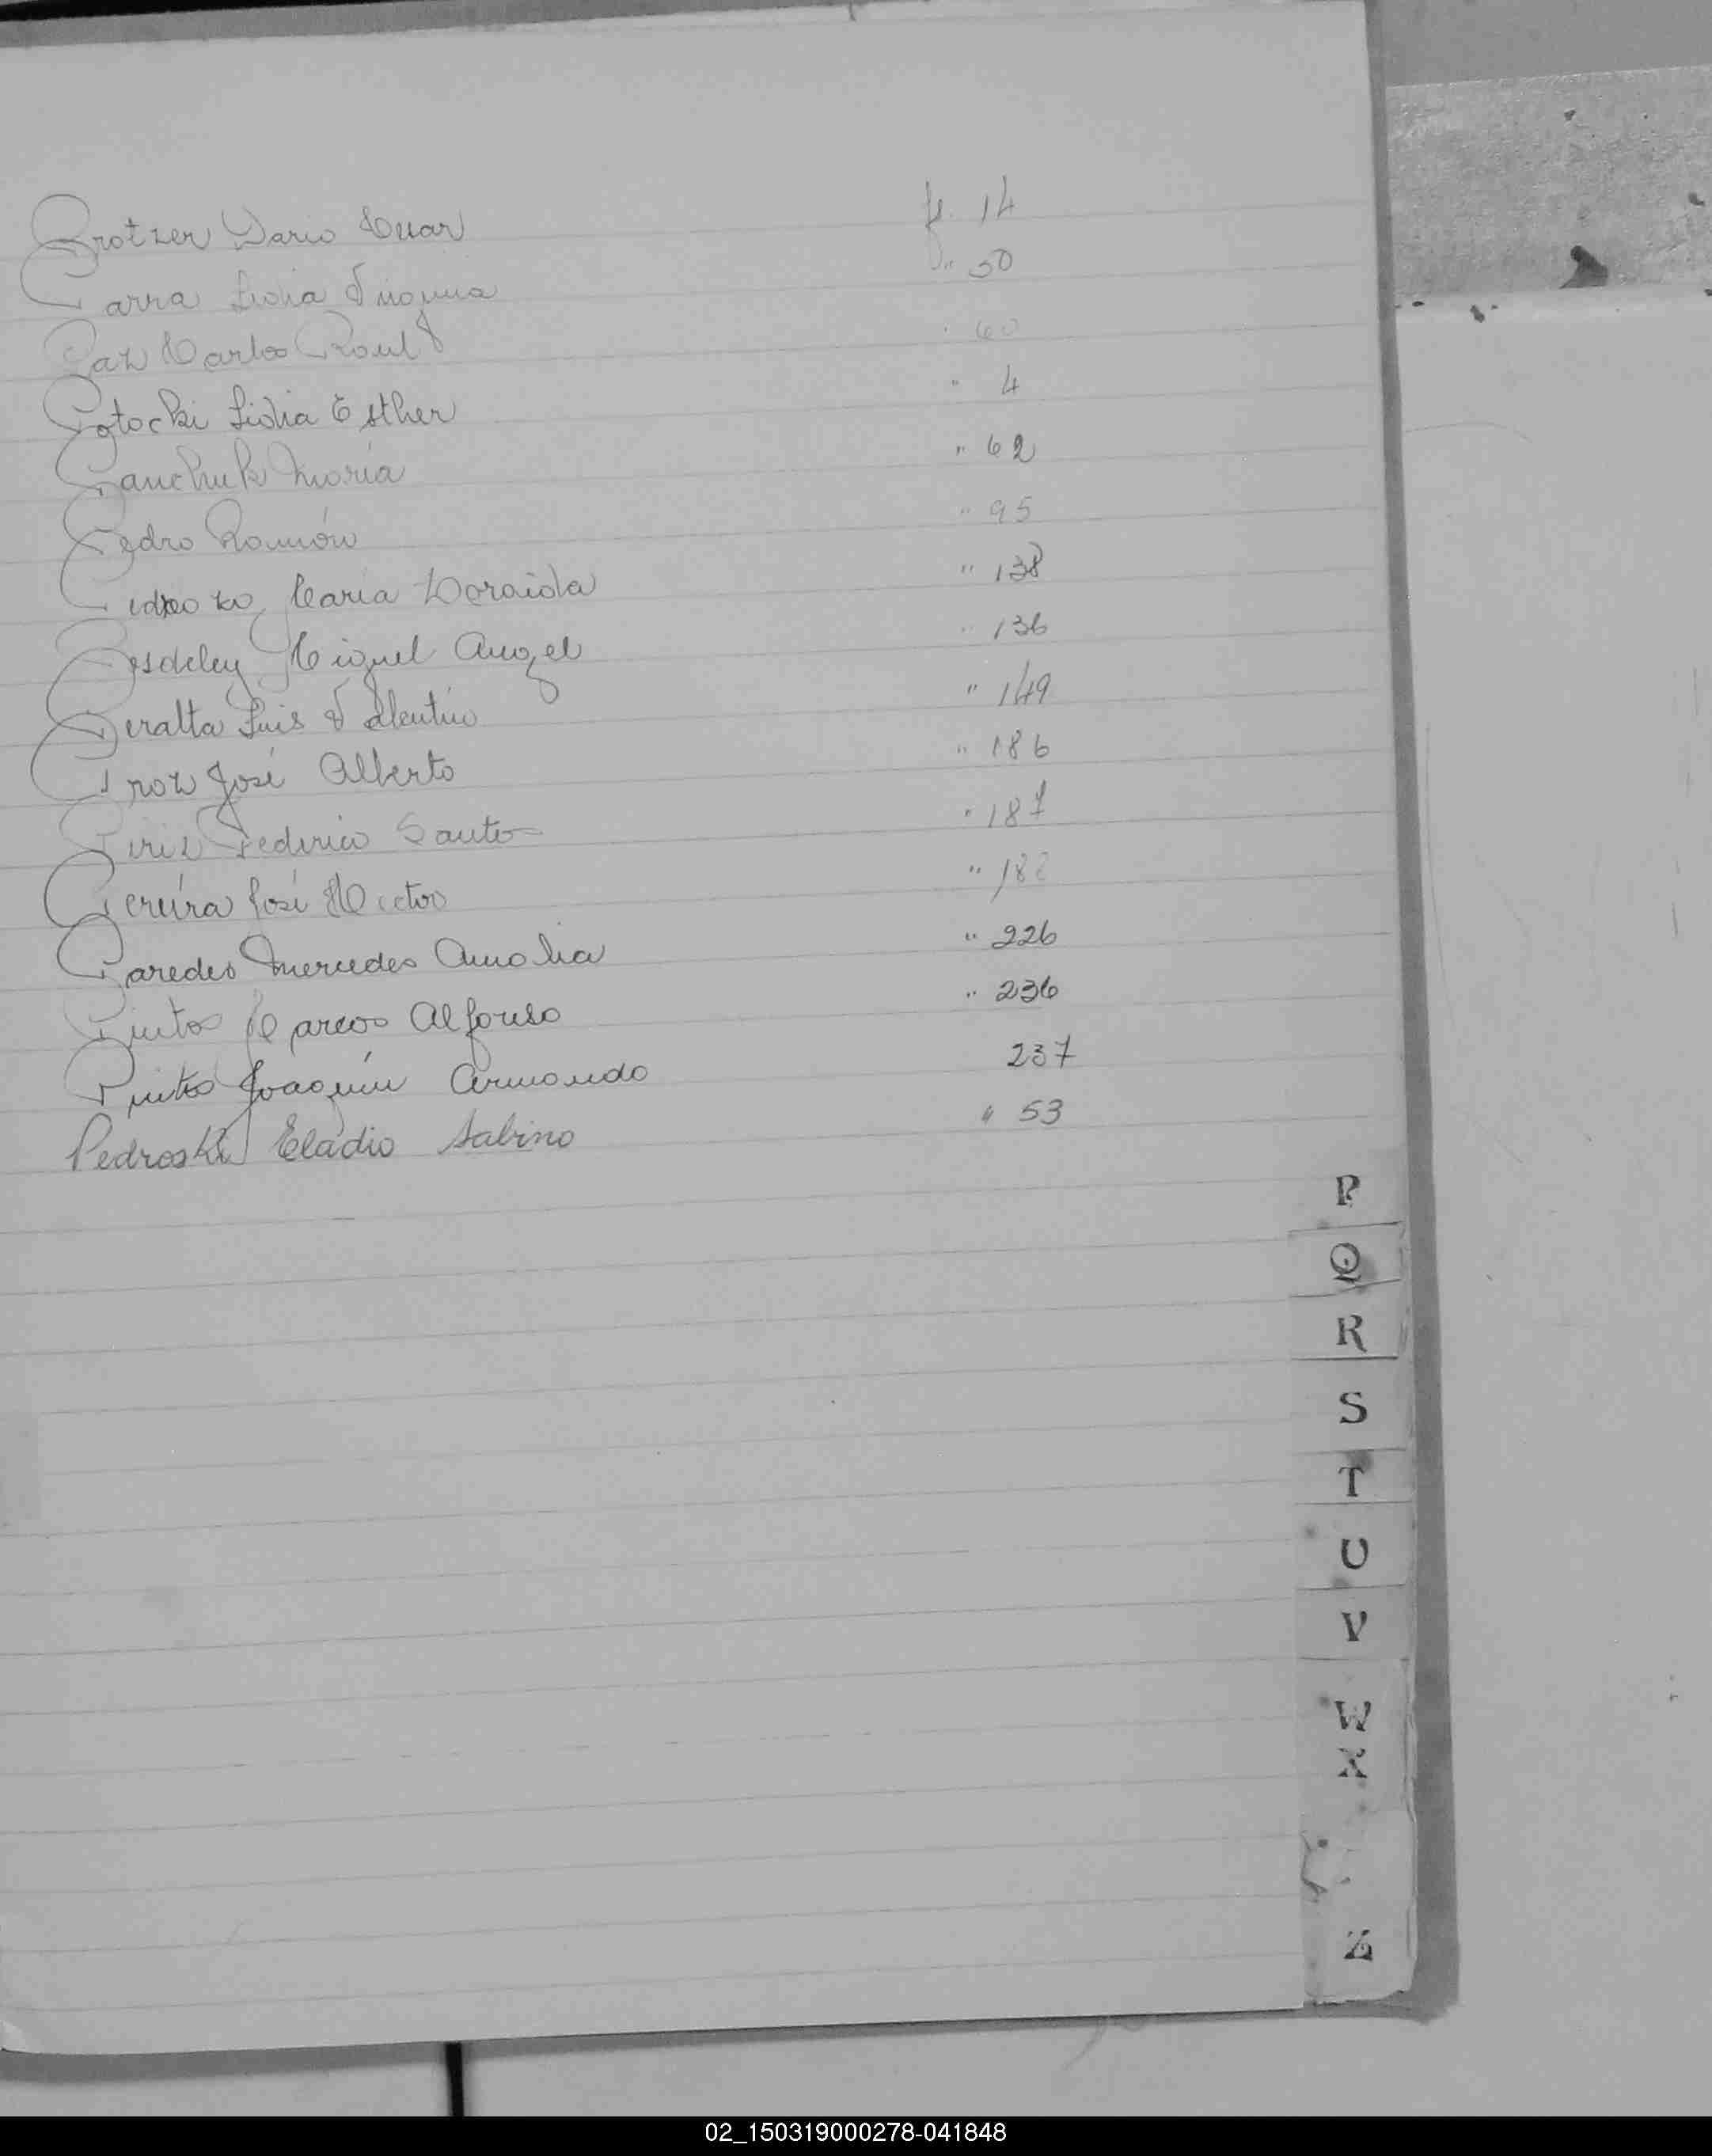 Protzer Dario Omar f. 14
Parra Lidia Virginia " 50
Paz Carlos Raul " 60
Potocki Lidia Esther " 4
Panchuk María " 62
Pedro Ramón " 95
María Zoraida " 138
Miguel Angel " 136
Peralta Luis Valentín " 149
José Alberto " 186
Piriz Federico Santos " 187
Pereira José Hector " 188
Paredes Mercedes Amalia " 226
Pintos Marcos Alfonso " 236
Pintos Joaquín Armando 237
Pedroski Eladio Sabino " 53
P
Q
R
S
T
U
V
W
X
Z
02_150319000278-041848